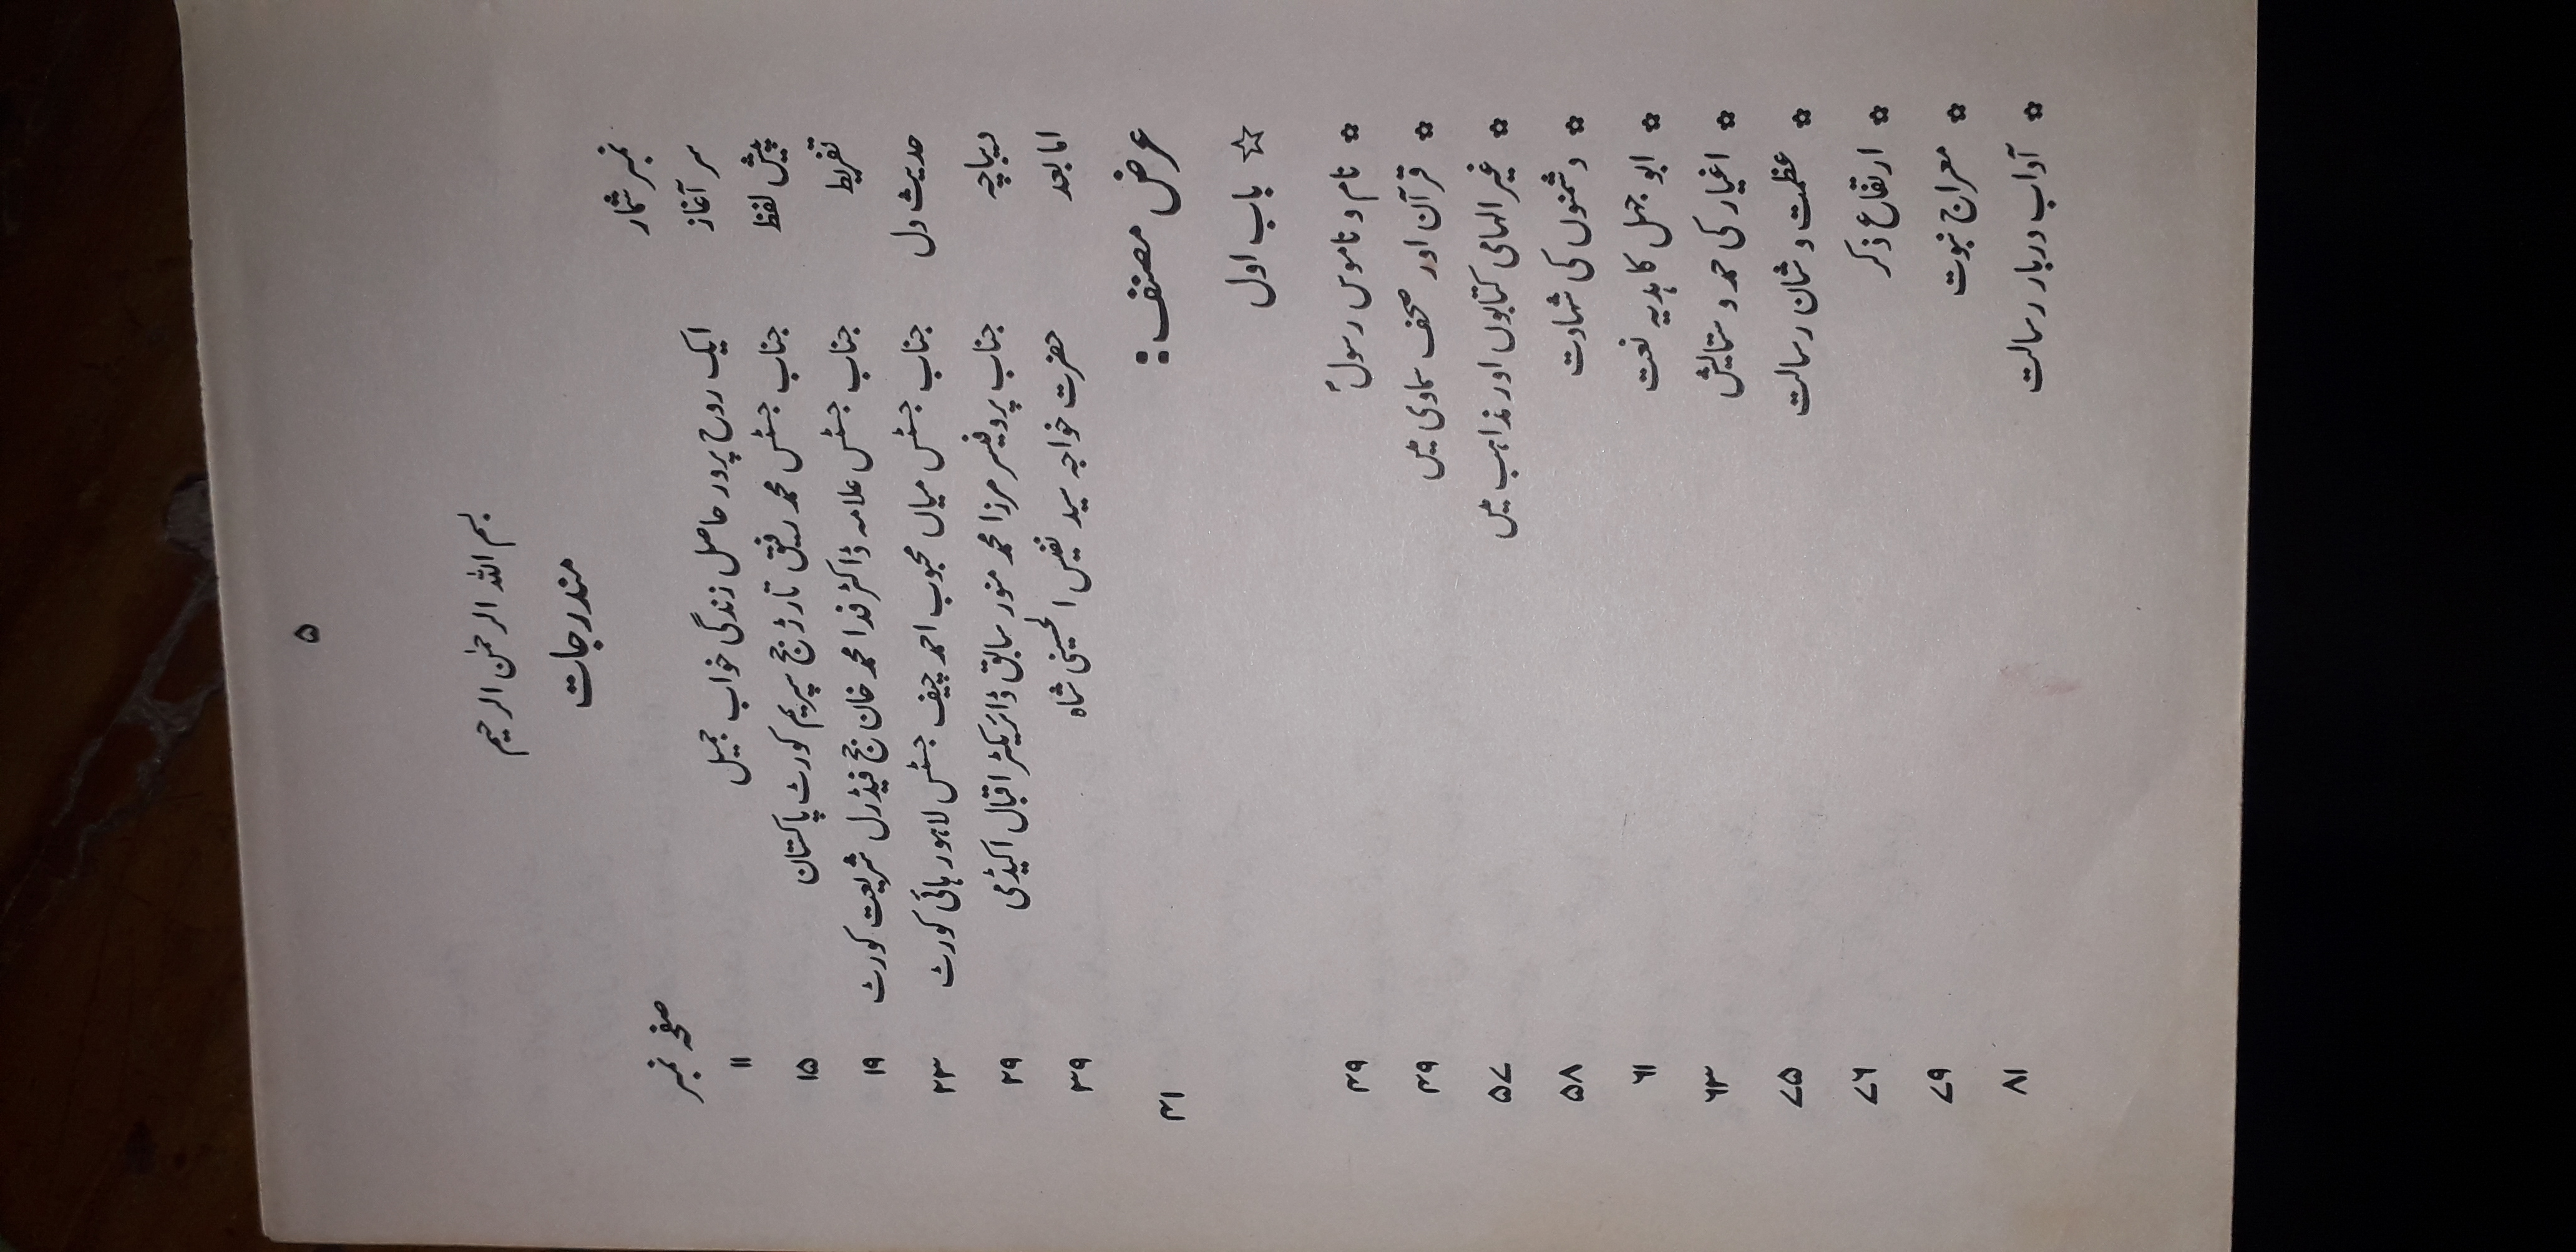 ۵
بسم اللہ الرحمٰن الرحیم
مندرجات
نمبر شمار صفحہ نمبر
سر آغاز ایک روح پرور حاصل زندگی خواب جمیل ۱۱
پیش لفظ جناب جسٹس محمد رفیق تارڑ جج سپریم کورٹ پاکستان ۱۵
تقریظ جناب جسٹس علامہ ڈاکٹر فدا محمد خان جج فیڈرل شریعت کورٹ ۱۹
حدیث دل جناب جسٹس میاں محبوب احمد چیف جسٹس لاہور ہائی کورٹ ۲۳
دیباچہ جناب پروفیسر مرزا محمد منور سابق ڈائریکٹر اقبال اکیڈمی ۲۹
امابعد حضرت خواجہ سید نفیس الحسینی شاہ ۳۹
عرض مصنف: ۴۱
☆ باب اول
✿ نام و ناموس رسولؐ ۴۹
✿ قرآن اور صحف سماوی میں ۴۹
✿ غیر الہامی کتابوں اور مذاہب میں ۵۷
✿ دشمنوں کی شہادت ۵۸
✿ ابو جہل کا ہدیہ نعت ۶۱
✿ اغیار کی حمد و ستایش ۶۳
✿ عظمت و شان رسالت ۷۵
✿ ارتفاع ذکر ۷۶
✿ معراج نبوت ۷۹
✿ آداب دربار رسالت ۸۱